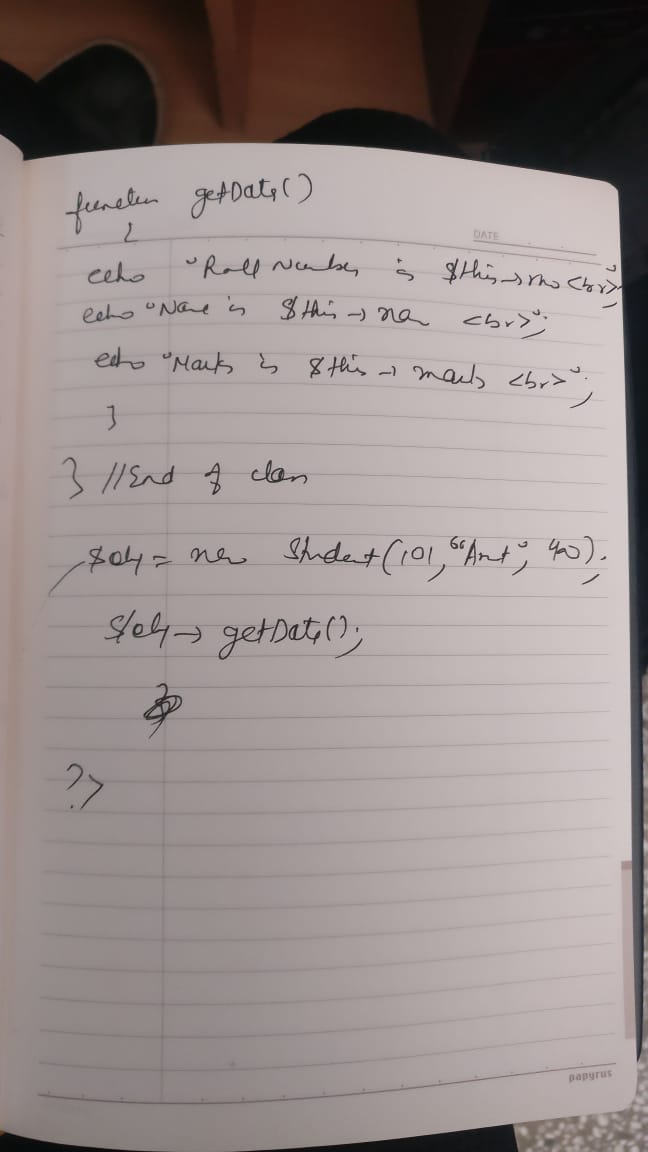 function getData()
DATE
{
echo "Roll Number is $this->rno <br>";
echo "Name is $this->nam <br>";
echo "Marks is $this->marks <br>";
}
} //End of class
$obj = new Student(101, "Amit", 400);
$obj->getData();
?>
papyrus